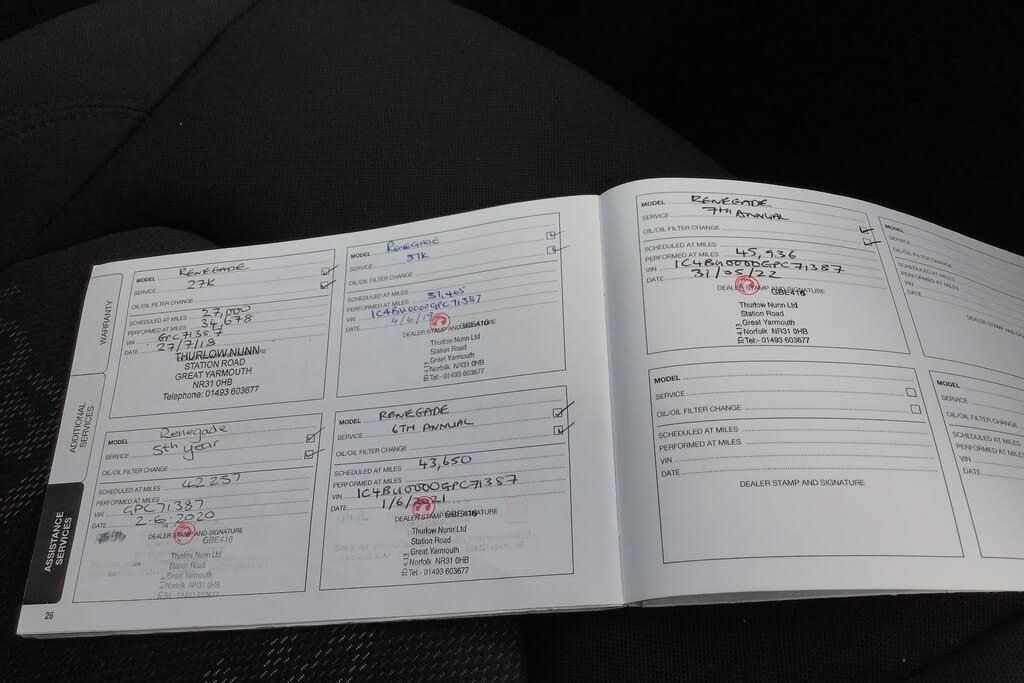 WARRANTY
ADDITIONAL
SERVICES
ASSISTANCE
SERVICES
26
MODEL RENEGADE
SERVICE 27K
OIL/OIL FILTER CHANGE
SCHEDULED AT MILES 27,000
PERFORMED AT MILES 34,678
VIN GPC71387
DATE 27/7/18
THURLOW NUNN
STATION ROAD
GREAT YARMOUTH
NR31 0HB
Telephone: 01493 603677
MODEL RENEGADE
SERVICE 37K
OIL/OIL FILTER CHANGE
SCHEDULED AT MILES
PERFORMED AT MILES 37,405
VIN 1C4BU0000GPC71387
DATE 4/6/19
DEALER STAMP AND SIGNATURE
GBE416
Thurlow Nunn Ltd
Station Road
Great Yarmouth
Norfolk NR31 0HB
Tel:- 01493 603677
MODEL Renegade
SERVICE 5th year
OIL/OIL FILTER CHANGE
SCHEDULED AT MILES
PERFORMED AT MILES 42257
VIN GPC71387
DATE 2-6-2020
DEALER STAMP AND SIGNATURE
GBE416
Thurlow Nunn Ltd
Station Road
Great Yarmouth
Norfolk NR31 0HB
Tel:- 01493 603677
MODEL RENEGADE
SERVICE 6TH ANNUAL
OIL/OIL FILTER CHANGE
SCHEDULED AT MILES 43,650
PERFORMED AT MILES
VIN 1C4BU0000GPC71387
DATE 1/6/2021
DEALER STAMP AND SIGNATURE
GBE416
Thurlow Nunn Ltd
Station Road
Great Yarmouth
Norfolk NR31 0HB
Tel:- 01493 603677
ID 4.13
MODEL RENEGADE
SERVICE 7TH ANNUAL
OIL/OIL FILTER CHANGE
SCHEDULED AT MILES
PERFORMED AT MILES 45,936
VIN 1C4BU0000GPC71387
DATE 31/05/22
DEALER STAMP AND SIGNATURE
GBE416
Thurlow Nunn Ltd
Station Road
Great Yarmouth
Norfolk NR31 0HB
Tel:- 01493 603677
ID 4.13
MODEL
SERVICE
OIL/OIL FILTER CHANGE
SCHEDULED AT MILES
PERFORMED AT MILES
VIN
DATE
DEALER STAMP AND SIGNATURE
MODEL
SERVICE
OIL/OIL FILTER CHANGE
SCHEDULED AT MILES
PERFORMED AT MILES
VIN
DATE
DEALER STAMP AND
MODEL
SERVICE
OIL/OIL FILTER CHANGE
SCHEDULED AT MILES
PERFORMED AT MILES
VIN
DATE